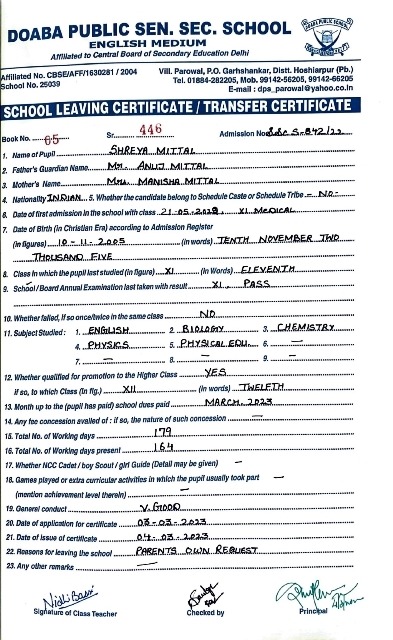 DOABA PUBLIC SEN. SEC. SCHOOL
ENGLISH MEDIUM
Affiliated to Central Board of Secondary Education Delhi
Affiliated No. CBSE/AFF/1630281 / 2004
School No. 25039
Vill. Parowal, P.O. Garhshankar, Distt. Hoshiarpur (Pb.)
Tel. 01884-282205, Mob. 99142-56205, 99142-66205
E-mail : dps_parowal@yahoo.co.in
SCHOOL LEAVING CERTIFICATE / TRANSFER CERTIFICATE
Book No. 65 Sr. 446 Admission No.
1. Name of Pupil SHREYA MITTAL
2. Father's Guardian Name Mr. ANUJ MITTAL
3. Mother's Name Mrs. MANISHA MITTAL
4. Nationality INDIAN 5. Whether the candidate belong to Schedule Caste or Schedule Tribe - NO-
6. Date of first admission in the school with class XI MEDICAL
7. Date of Birth (in Christian Era) according to Admission Register
(in figures) 10-11-2005 (in words) TENTH NOVEMBER TWO
THOUSAND FIVE
8. Class In which the pupil last studied (in figure) XI (in Words) ELEVENTH
9. School / Board Annual Examination last taken with result XI, PASS
10. Whether failed, if so once/twice in the same class NO
11. Subject Studied : 1. ENGLISH 2. BIOLOGY 3. CHEMISTRY
4. PHYSICS 5. PHYSICAL EDU. 6. —
7. — 8. — 9. —
12. Whether qualified for promotion to the Higher Class YES
if so, to which Class (In fig.) XII (in Words) TWELFTH
13. Month up to the (pupil has paid) school dues paid MARCH, 2023
14. Any fee concession availed of : if so, the nature of such concession —
15. Total No. of Working days 179
16. Total No. of Working days present 164
17. Whether NCC Cadet / boy Scout / girl Guide (Detail may be given) —
18. Games played or extra curricular activities in which the pupil usually took part —
(mention achievement level therein) —
19. General conduct V. GOOD
20. Date of application for certificate 03-03-2023
21. Date of issue of certificate 04-03-2023
22. Reasons for leaving the school PARENTS OWN REQUEST
23. Any other remarks —
Nidhi Bassi
Signature of Class Teacher
Checked by
Principal